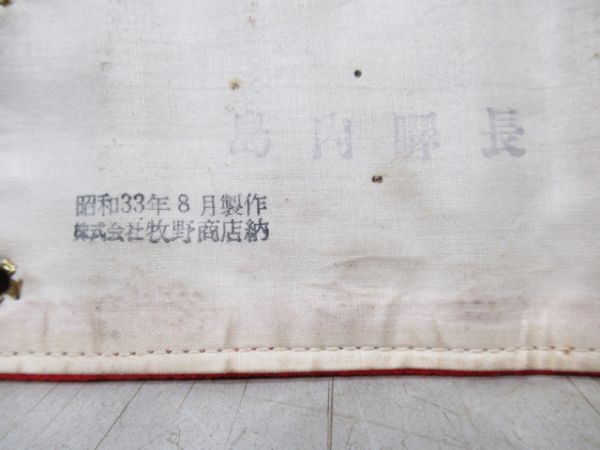 長駅内島
昭和33年8月製作
株式会社牧野商店納